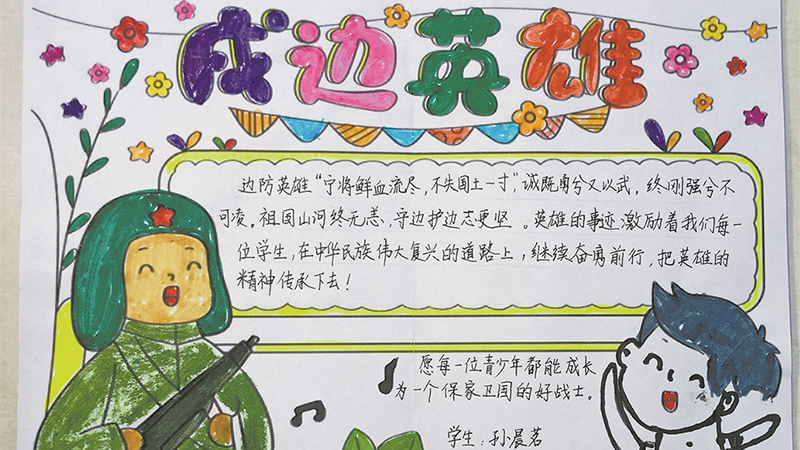 戍边英雄
边防英雄“宁将鲜血流尽，不失国土一寸”，诚既勇兮又以武，终刚强兮不
可凌。祖国山河终无恙，守边护边志更坚。英雄的事迹激励着我们每一
位学生，在中华民族伟大复兴的道路上，继续奋勇前行，把英雄的
精神传承下去！
愿每一位青少年都能成长
为一个保家卫国的好战士。
学生：孙晨茗